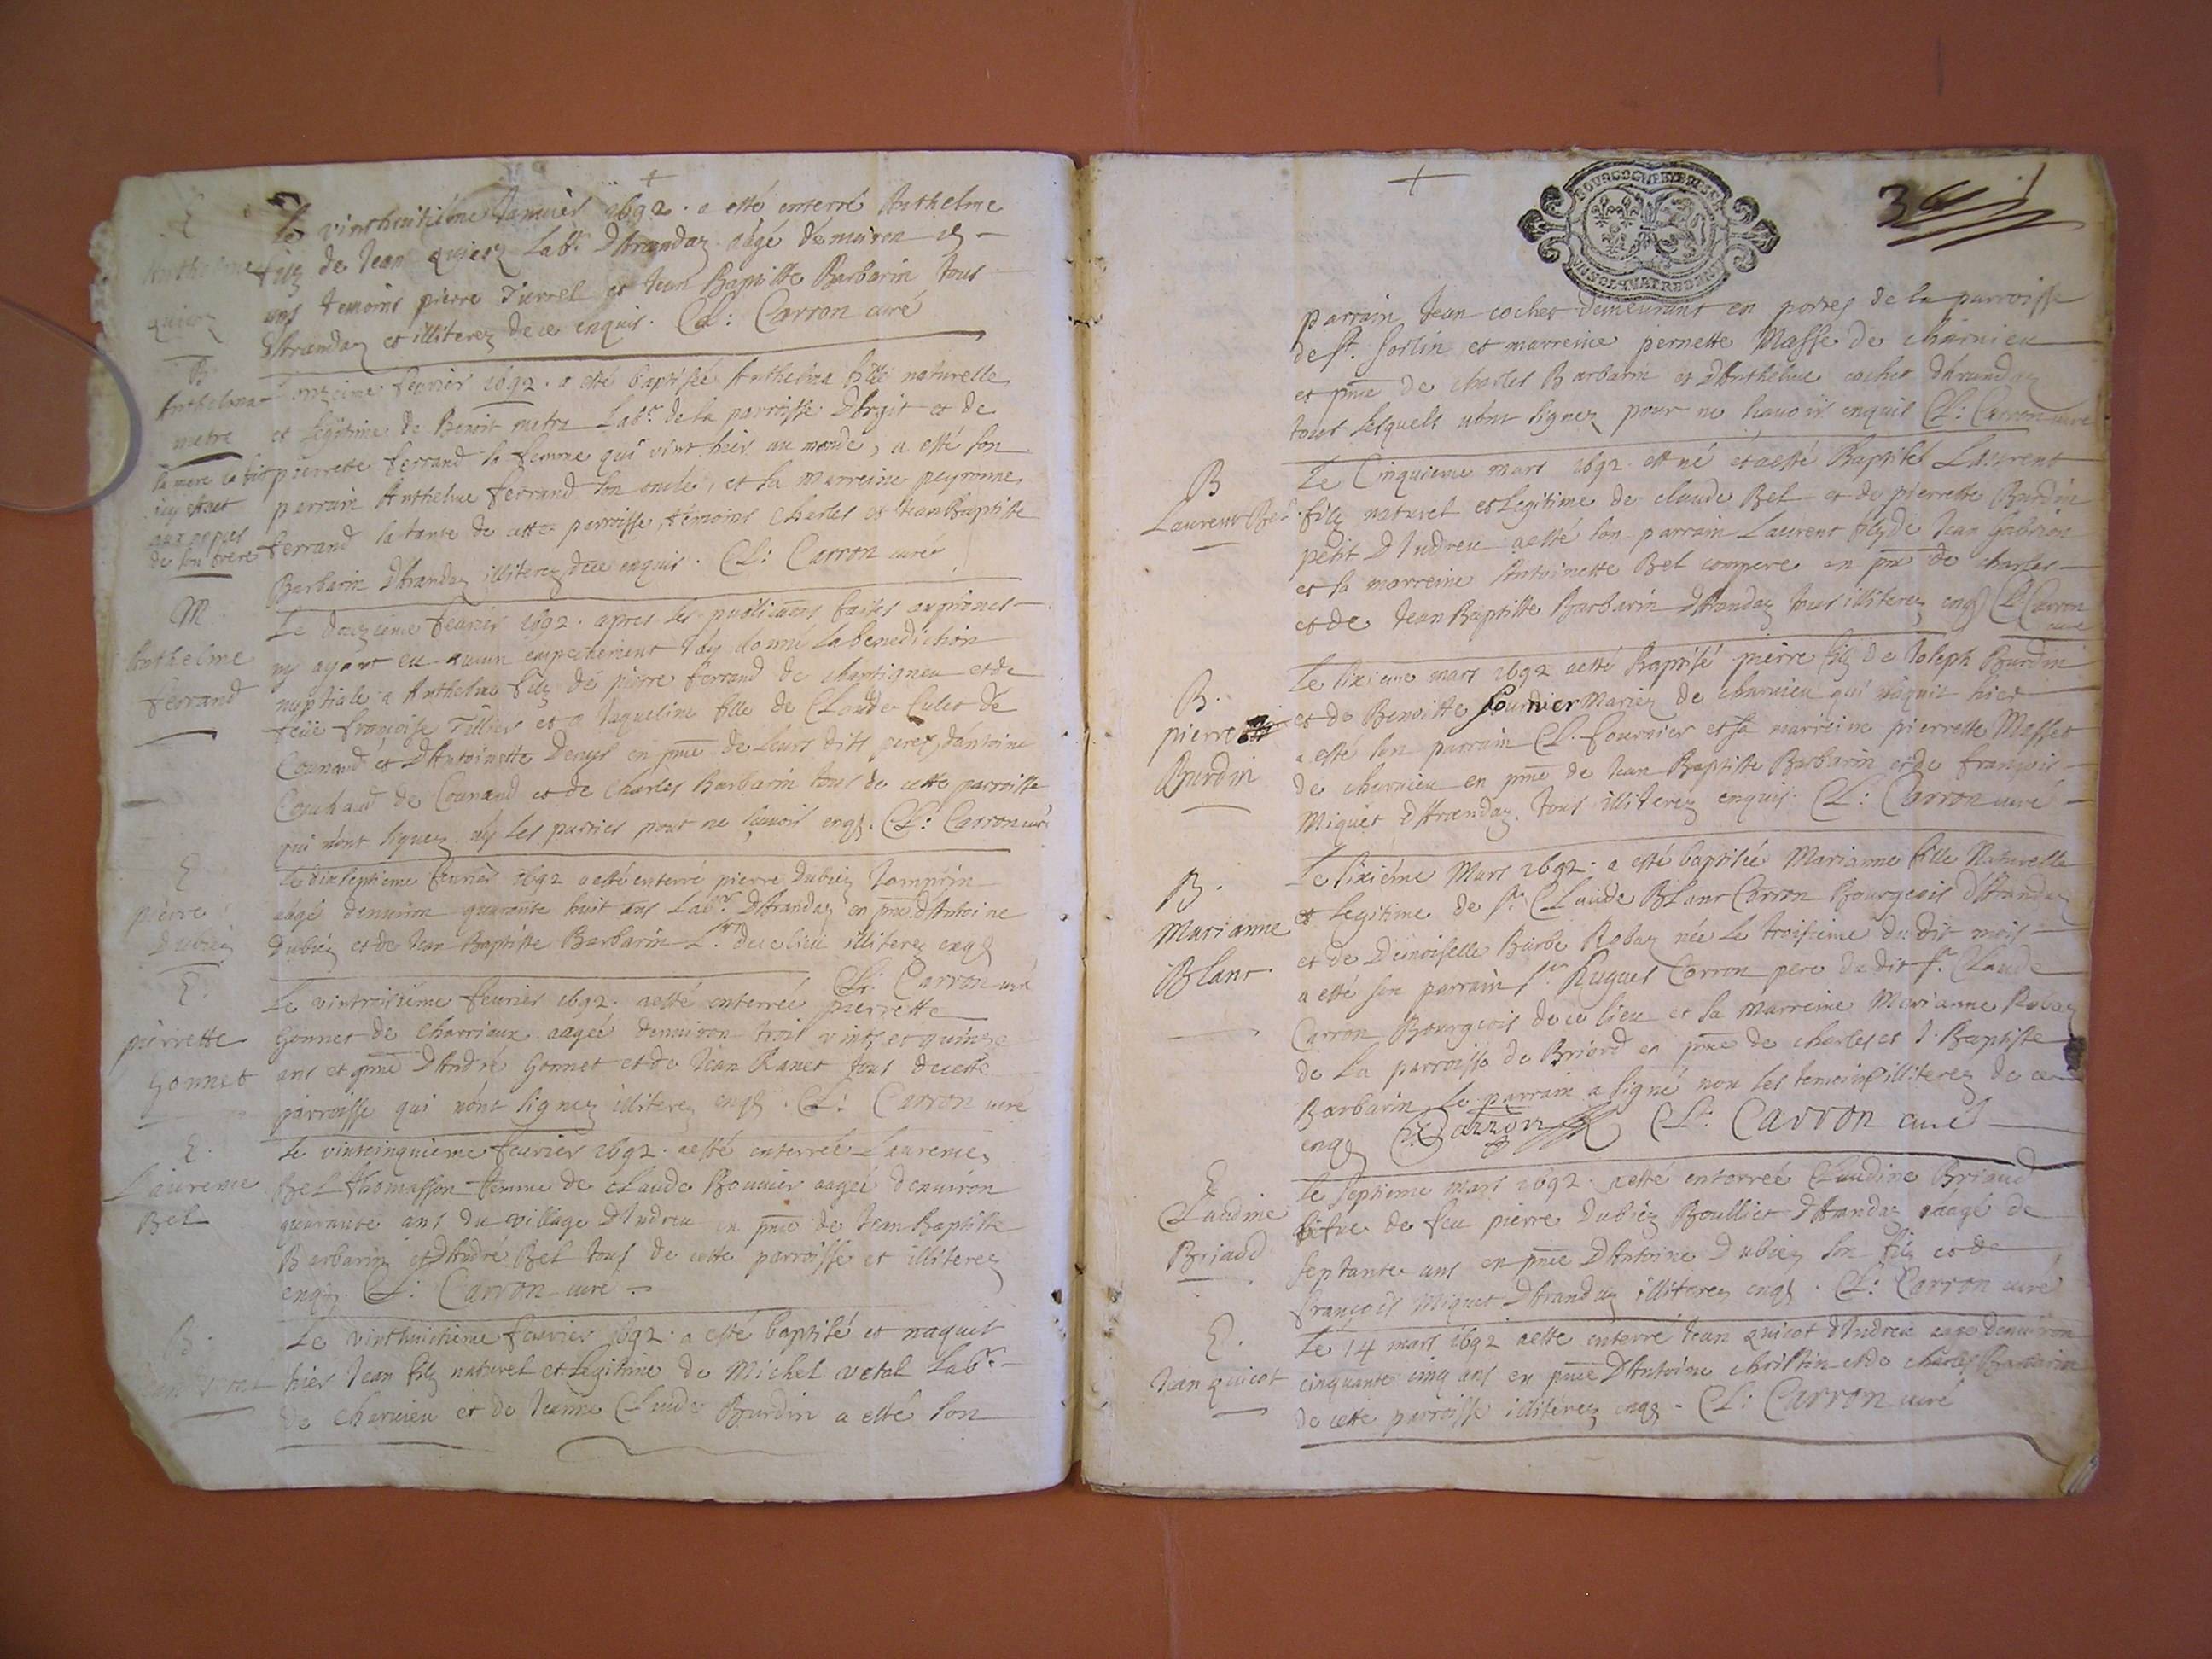 E
Le vinthuitiéme Janvier 1692. a esté enterré Anthelme
Anthelme
filz de Jean Quicoz Labr. D'Arandaz aagé d'enuiron
ans temoins pierre Turrel et Jean Baptiste Barbarin tous
d'Arandaz et illiterez de ce enquis. Cl: Carron curé
B.
Anthelma
metra
L'onzieme feurier 1692. a esté baptisée Anthelma fille naturelle
et legitime de Benoit metra Labr. de la parroisse D'Argit et de
pierrette ferrand sa femme qui vint hier au monde, a esté son
parrain Anthelme ferrand son oncle, et sa marreine peyronne
ferrand sa tante de cette parroisse, temoins Charles et Jean Baptiste
Barbarin d'Arandaz illiterez de ce enquis. Cl: Carron curé
la mere la fait
icy estant
aux nopces
de son frere
M.
Anthelme
ferrand
Le douzieme feurier 1692. apres les publicaons faites aux prones
ny ayant eu aucun empechement J'ay donné la benediction
nuptiale a Anthelme filz de pierre ferrand de Chapigneu et de
feüe françoise Tillier et a Jaqueline fille de Claude Culet de
Counaud et D'Antoinette Denys en pnce de leurs dits peres, d'Antoine
Couchaud de Counand et de Charles Barbarin tous de cette parroisse
qui n'ont signez ny les parties pour ne sçauoir enqs. Cl: Carron curé
E
pierre
Dubiez
Le dixseptieme feurier 1692 a esté enterré pierre Dubiez
aagé d'enuiron quarante huit ans Labr. D'Arandaz en pnce d'Antoine
Dubiez et de Jean Baptiste Barbarin Lrs. de ce lieu illiterez enqs
Cl: Carron curé
E.
pierrette
Gonnet
Le vintroisiéme feurier 1692. a esté enterrée pierrette
Gonnet de Charriaux aagée d'enuiron trois vints et quinze
ans et pnce D'André Gonnet et de Jean Ranet tous de cette
parroisse qui n'ont signez illiterez enqs. Cl: Carron curé
E.
Laurence
Bel
Le vintcinquieme feurier 1692. a esté enterrée Laurence
Bel thomasson femme de Claude Bouuier aagée d'enuiron
quarante ans du village D'Indrieu en pnce de Jean Baptiste
Barbarin et D'André Bel tous de cette parroisse et illiterez
enqs. Cl: Carron curé
B.
Le vinthuictieme feurier 1692. a esté baptisé et naquit
hier Jean filz naturel et legitime de Michel vetal Labr.
de Charuieu et de Jeanne Claude Burdin a esté son
BOURGOGNE
3
parrain Jean cochet demeurant en portes de la parroisse
de St. Sorlin et marreine pernette Masse de charuieu
et pnce de charles Barbarin et D'Anthelme cochet d'Arandaz
tous lesquels n'ont signez pour ne sçauoir enquis Cl: Carron curé
B
Laurent Bel
Le Cinquieme mars 1692. est né et a esté Baptisé Laurent
filz naturel et legitime de claude Bel et de pierrette Burdin
petit D'Indrieu a esté son parrain Laurent filz de Jean
et sa marreine Antoinette Bel compere en pnce de charles
et de Jean Baptiste Barbarin d'Arandaz tous illiterez enqs Cl: Carron
curé
B.
pierre
Burdin
Le sixieme mars 1692 a esté baptisé pierre filz de Joseph Burdin
et de Benoitte fournier mariez de charuieu qui naquit hier
a esté son parrain Cl. fournier et sa marreine pierrette Masset
de charuieu en pnce de Jean Baptiste Barbarin et de françois
Miguet d'Arandaz. tous illiterez enquis. Cl: Carron curé
B.
Marianne
Blanc
Le sixiéme Mars 1692. a esté baptisée Marianne fille Naturelle
et legitime de Sr. Claude Blanc Carron Bourgeois d'Arandaz
et de Demoiselle Barbe Robaz née le troisieme du dit mois
a esté son parrain Sr. Hugues Carron pere du dit Sr. Claude
Carron Bourgeois de ce lieu et sa marreine Marianne Robaz
de la parroisse de Briord en pnce de charles et J. Baptiste
Barbarin le parrain a signé non les temoins illiterez de ce
enqs Carron Cl: Carron curé
E
Claudine
Briaud
Le septieme mars 1692. a esté enterrée Claudine Briaud
vefue de feu pierre Dubiez Boulliet d'Arandaz aagé de
septante ans en pnce D'Antoine Dubiez son filz et de
françois Miguet D'Arandaz illiterez enqs. Cl: Carron curé
E.
Jean Quicot
Le 14 mars 1692 a esté enterré Jean Quicot d'Indrieu aagé d'enuiron
cinquante cinq ans en pnce D'Antoine christin et de charles Barbarin
de cette parroisse illiterez enqs. Cl: Carron curé